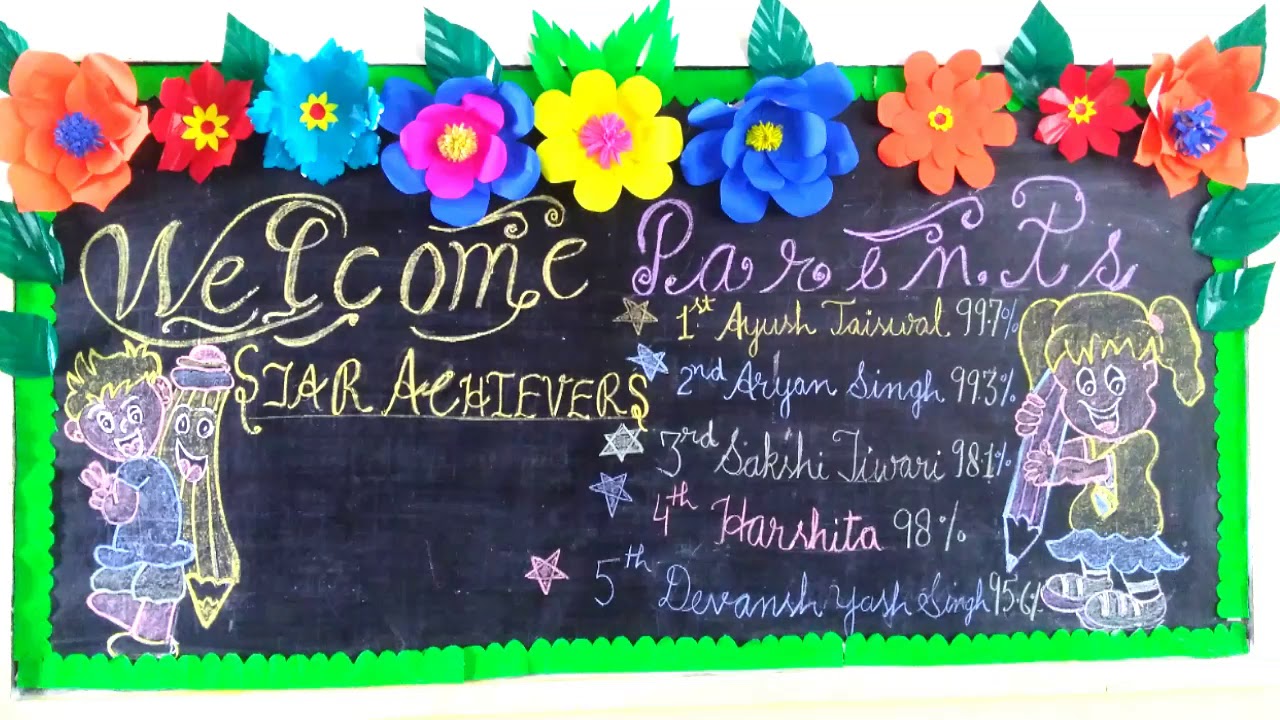 Welcome Parents
STAR ACHIEVERS
1st Ayush Jaiswal 99.7%
2nd Aryan Singh 99.3%
3rd Sakshi Tiwari 98.1%
4th Harshita 98%
5th Devansh Yash Singh 95.6%